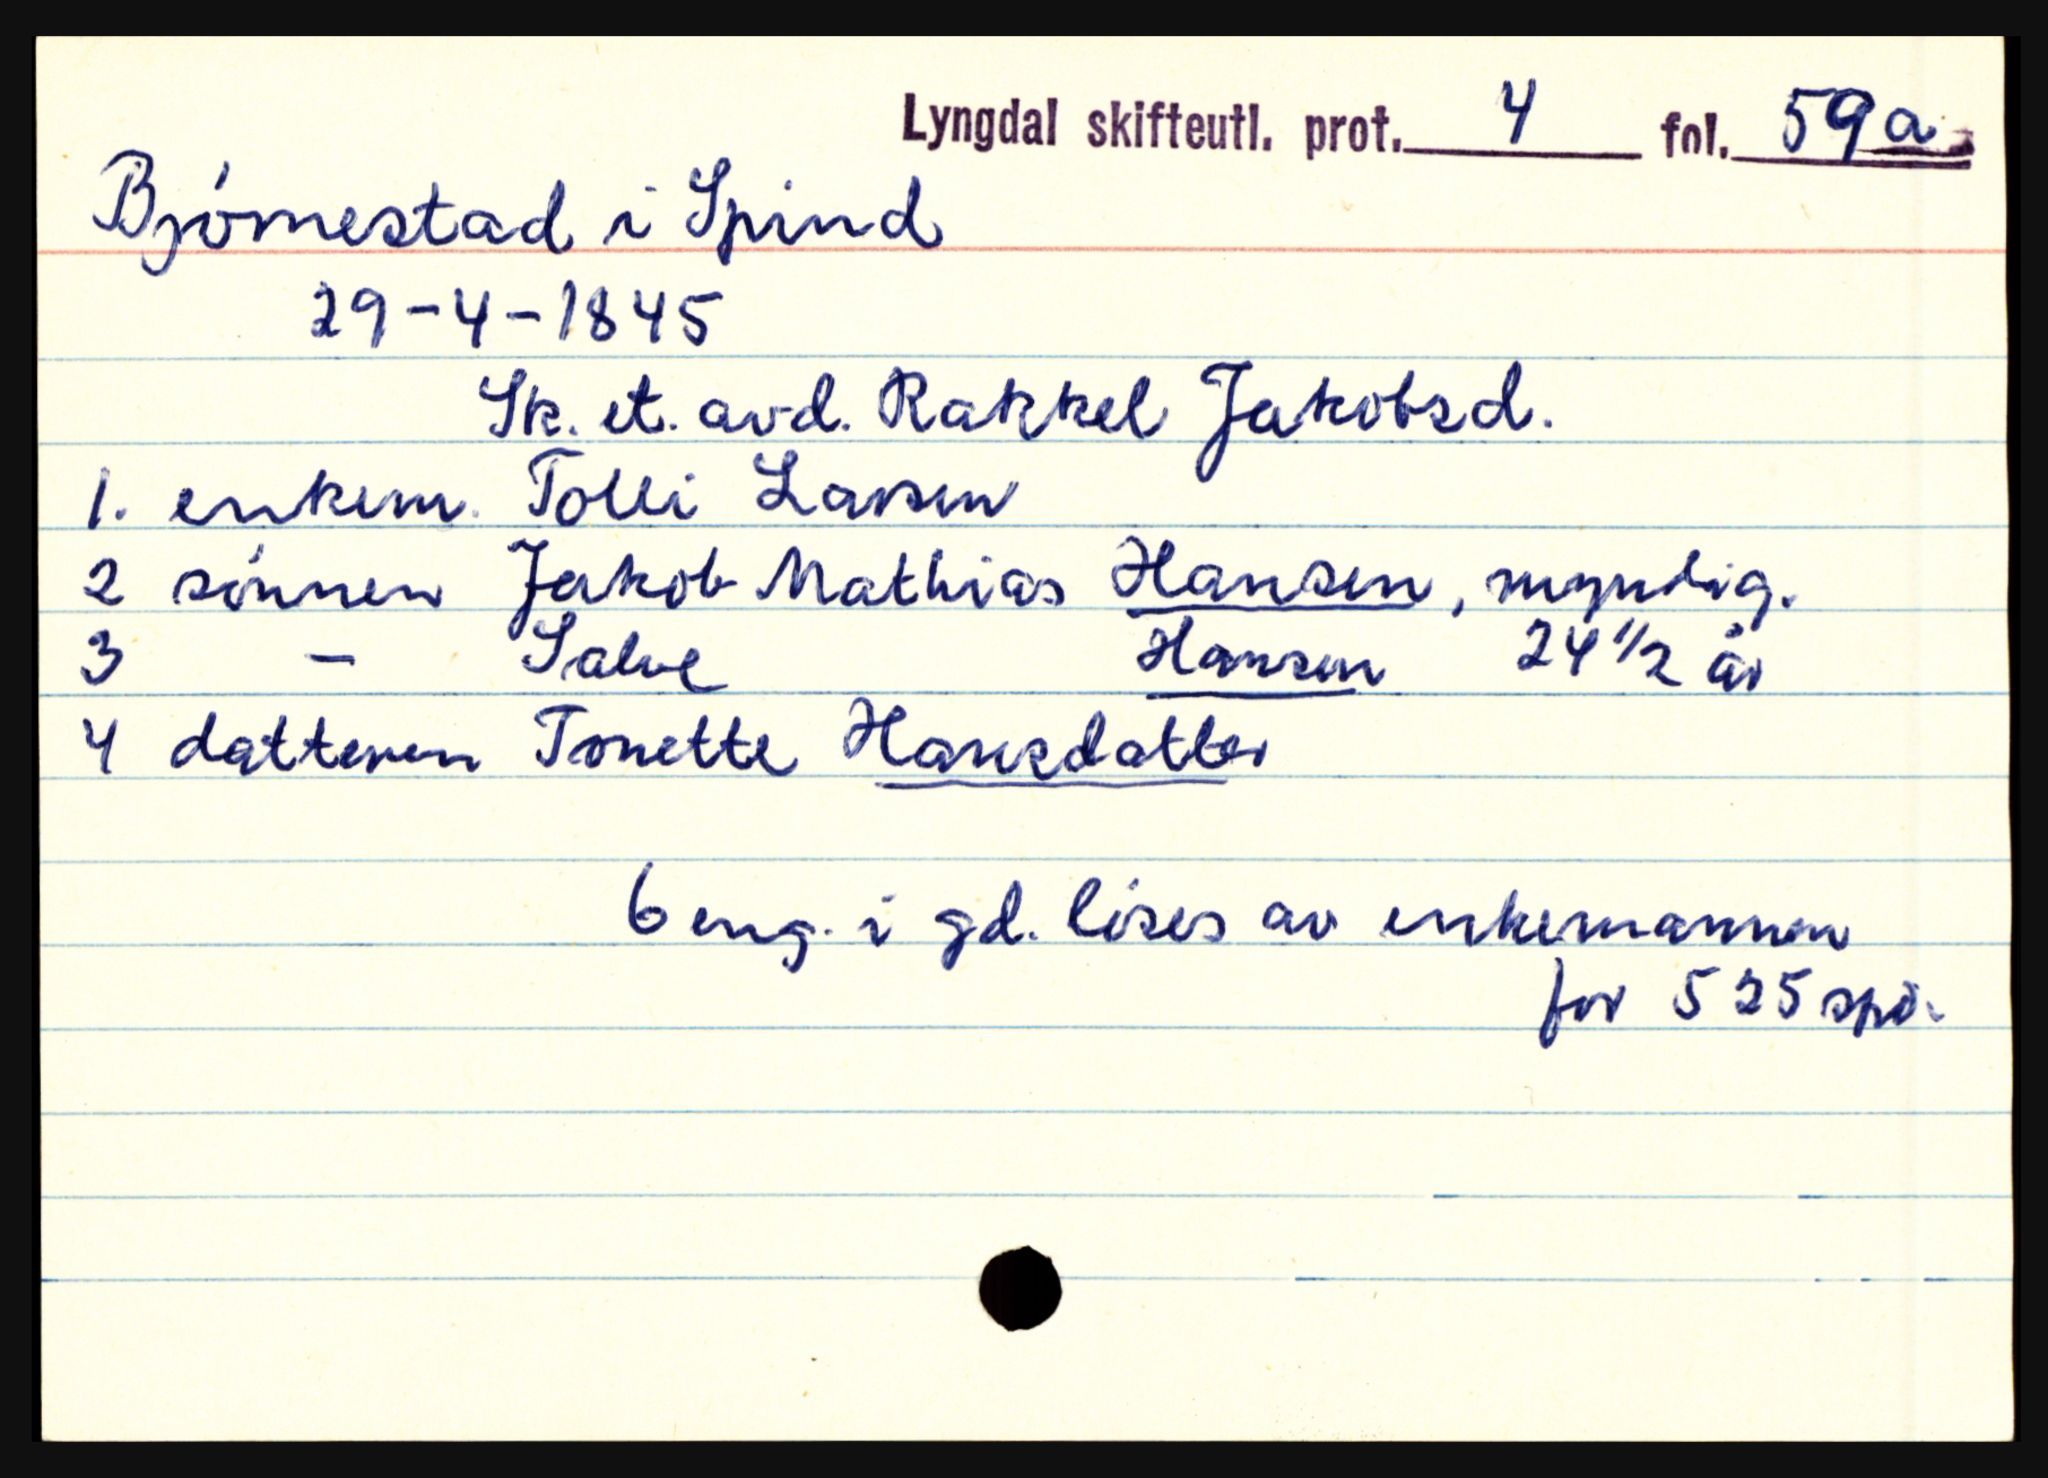 Lyngdal skifteutl. prot. 4 fol. 59a.
Bjørnestad i Spind
29-4-1845
Sk. et. avd. Rakkel Jakobsd.
1. enkem. Tolli Larsen
2 sønnen Jakob Mathias Hansen, myndig.
3 - Salve Hansen 24 1/2 år
4 datteren Tonette Hansdatter
6 eng. i gd. løses av enkemannen
for 525 spd.